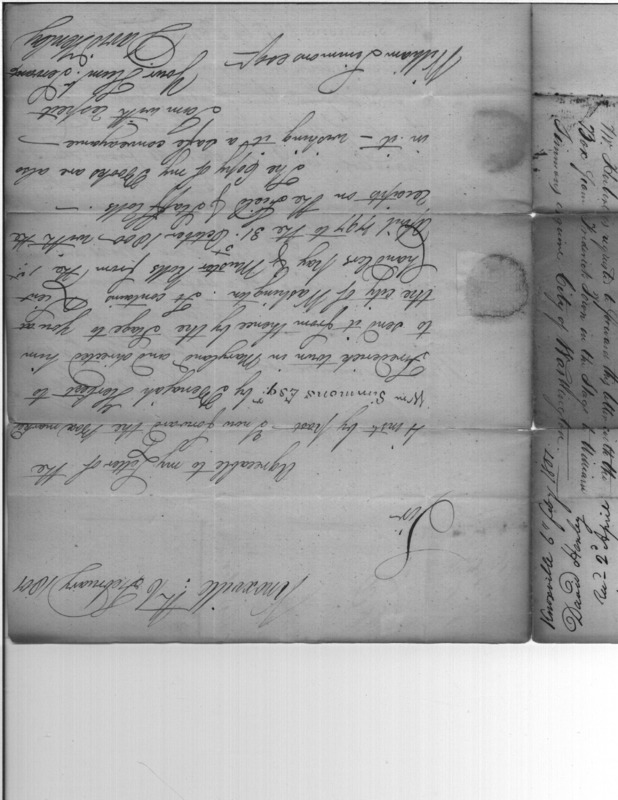 Knoxville: The 6 February 1801
Sir
Agreeable to my Letter of the
4 inst by post I now forward the Box marked
Wm Simmons Esqr. by Benajah to
Frederick town in Maryland and directed him
to send it from thence by the Stage to you at
the city of Washington. It contains Lieut
Chandlers Pay & Muster Rolls from the 1st
April 1797 to the 31 October 1800 with the
receipts on the Field & Staff Rolls. —
The Copy of my Books are also
in it — wishing it a safe conveyance —
I am with respect
Your Hum. Servant
David Henley
William Simmons Esqr
Mr is requested to forward this letter with the
Box from Frederick Town in the Stage to William
Simmons Esquire City of Washington
Knoxville 6 Feby 1801
David Henley
2d April